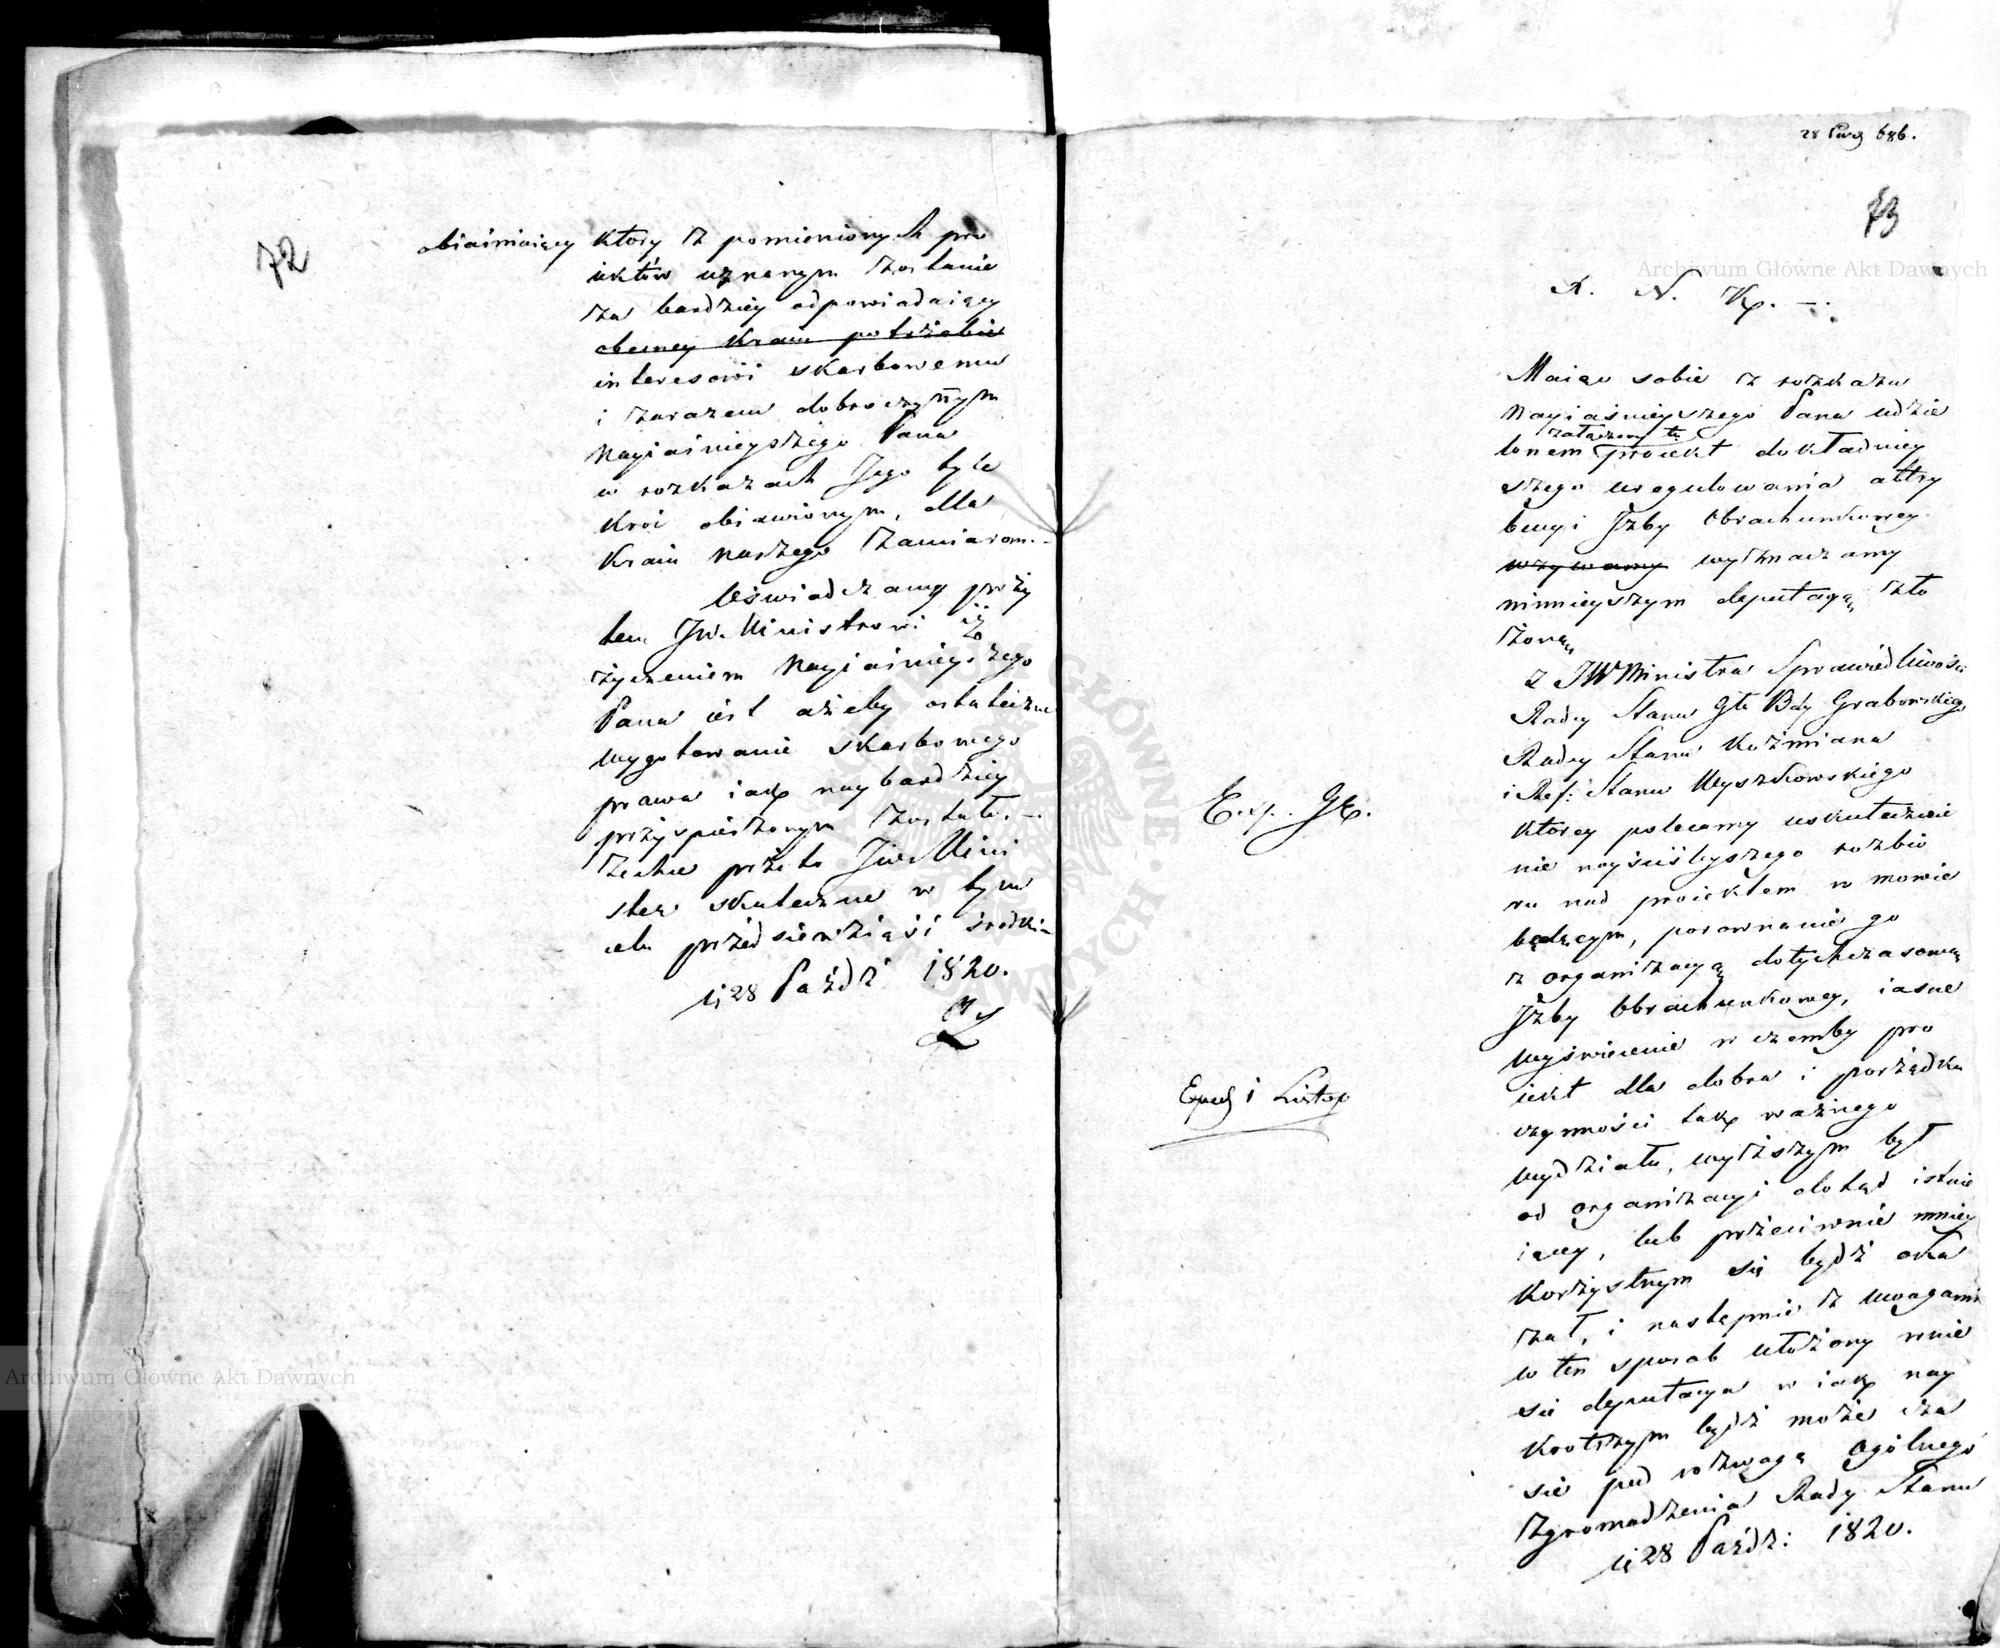 72
obiaśniaiący który z pomienionych pro
iektów uznanym zostanie
za bardziey odpowiadaiący
obecney Kraiu potrzebie
interesowi skarbowemu
i zarazem dobroczynnym
Nayiaśnieyszego Pana
w rozkazach Jego tyle
kroć obiawionym, dla
Kraiu naszego zamiarom.
Oświadczamy przy
tem JW. Ministrowi iż
życzeniem Nayiaśnieyszego
Pana iest ażeby ostateczne
wygotowanie skarbowego
prawa iak naybardziey
przyspieszonym zostało.
Zechce przeto JW. Mini
ster skuteczne w tym
celu przedsiewziąść środki
d. 28 Paźdz 1820.
28 Paź 686.
73
Archiwum Główne Akt Dawnych
R. N. Kr.
Maiąc sobie z rozkazu
Nayiaśnieyszego Pana udzie
załączony tu
lonem proiekt dokładniey
szego uregulowania attry
bucyi Izby Obrachunkowey
wzywamy wyznaczamy
ninieyszym deputacyą zło
żoną
z JW Ministra Sprawiedliwości
Radcy Stanu Gł Bdy Grabowskiego
Radcy Stanu Koźmiana
i Ref: Stanu Wyszkowskiego
którey polecamy uskutecznie
nie nayściśleyszego rozbio
ru nad proiektem w mowie
będącym, porownanie go
z organizacyą dotychczasową
Izby Obrachunkowey, iasne
wyświecenie w czemby pro
iekt dla dobra i porządku
czynności tak ważnego
wydziału, wyższym był
od organizacyi dotąd istnie
iącey, lub przeciwnie mniey
korzystnym się bydź oka
zał, i następnie z uwagami
w ten sposob ułożony wnie
sie deputacya w iak nay
krotszym bydź może cza
sie pod rozwagę Ogólnego
Zgromadzenia Rady Stanu
d. 28 Paźdz: 1820.
Exp. GK.
Exped 1 Listop
Archiwum Główne Akt Dawnych